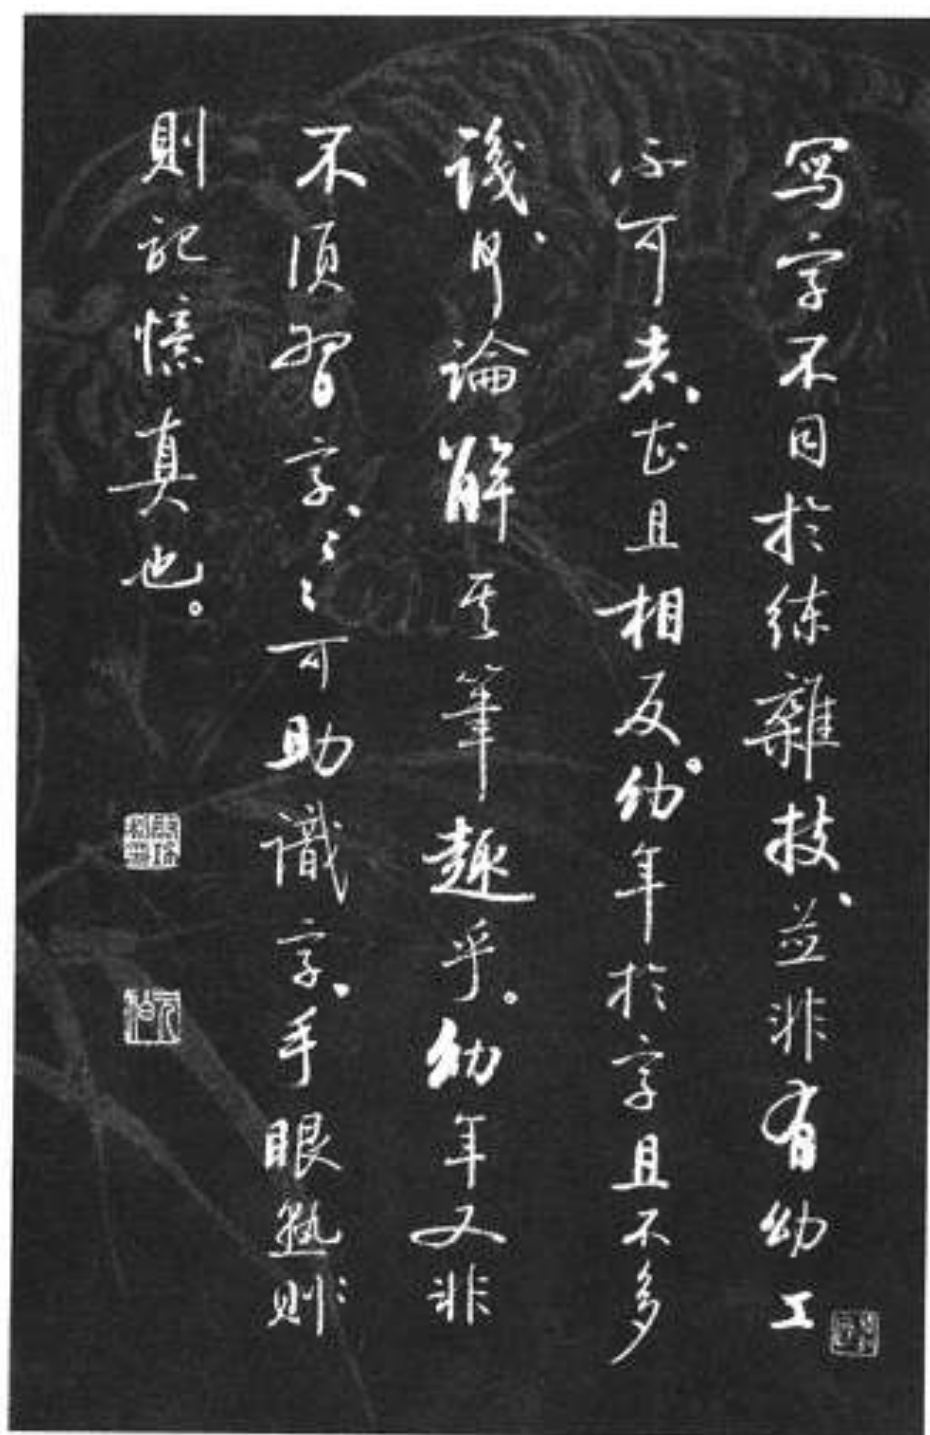 写字不同於練雜技、並非有幼工
不可者、甚且相反。幼年於字且不多
識、何論解其筆趣乎。幼年又非
不須習字、々々可助識字、手眼熟則
則記憶真也。